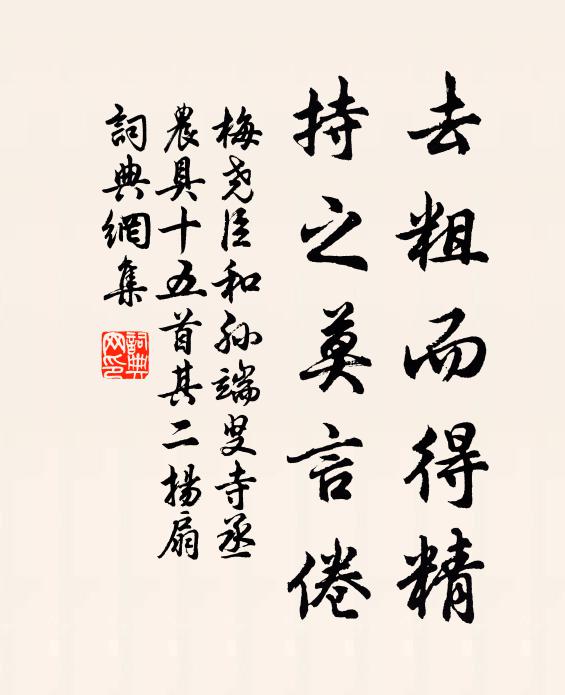 去粗而得精
持之莫言倦
梅尧臣和孙端叟寺丞
農具十五首其二揚扇
詞典網集
詞典网印